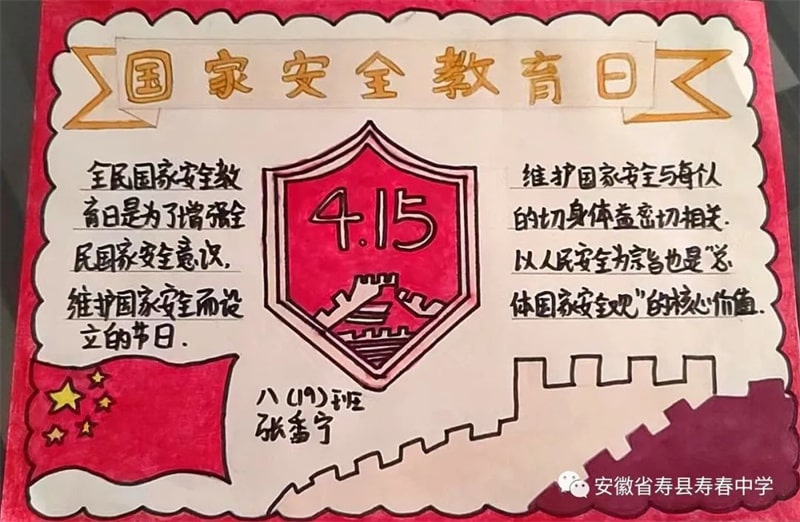 国家安全教育日
全民国家安全教
育日是为了增强全
民国家安全意识,
维护国家安全而设
立的节日.
4.15
维护国家安全与每个人
的切身体益密切相关.
以人民安全为宗旨也是“总
体国家安全观”的核心价值.
八(19)班
张
宁
安徽省寿县寿春中学